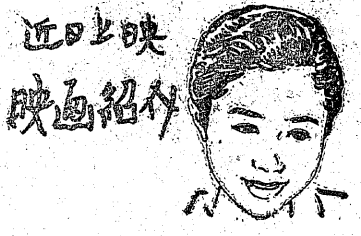 近日上映
映画紹介